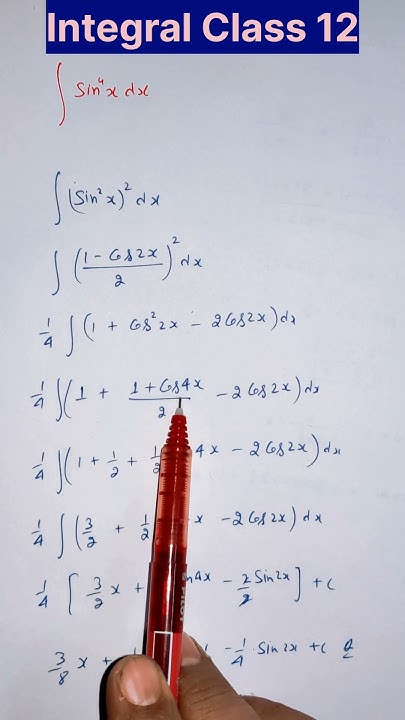 Integral Class 12
∫ Sin⁴x dx
∫ (Sin²x)² dx
∫ ((1 - Cos2x)/2)² dx
1/4 ∫ (1 + Cos²2x - 2Cos2x) dx
1/4 ∫ (1 + (1 + Cos4x)/2 - 2Cos2x) dx
1/4 ∫ (1 + 1/2 + 4x - 2Cos2x) dx
1/4 ∫ (3/2 + 1/2 x - 2Cos2x) dx
1/4 [3/2 x + 4x - 2/2 Sin2x] + C
3/8 x + - 1/4 · Sin2x + C